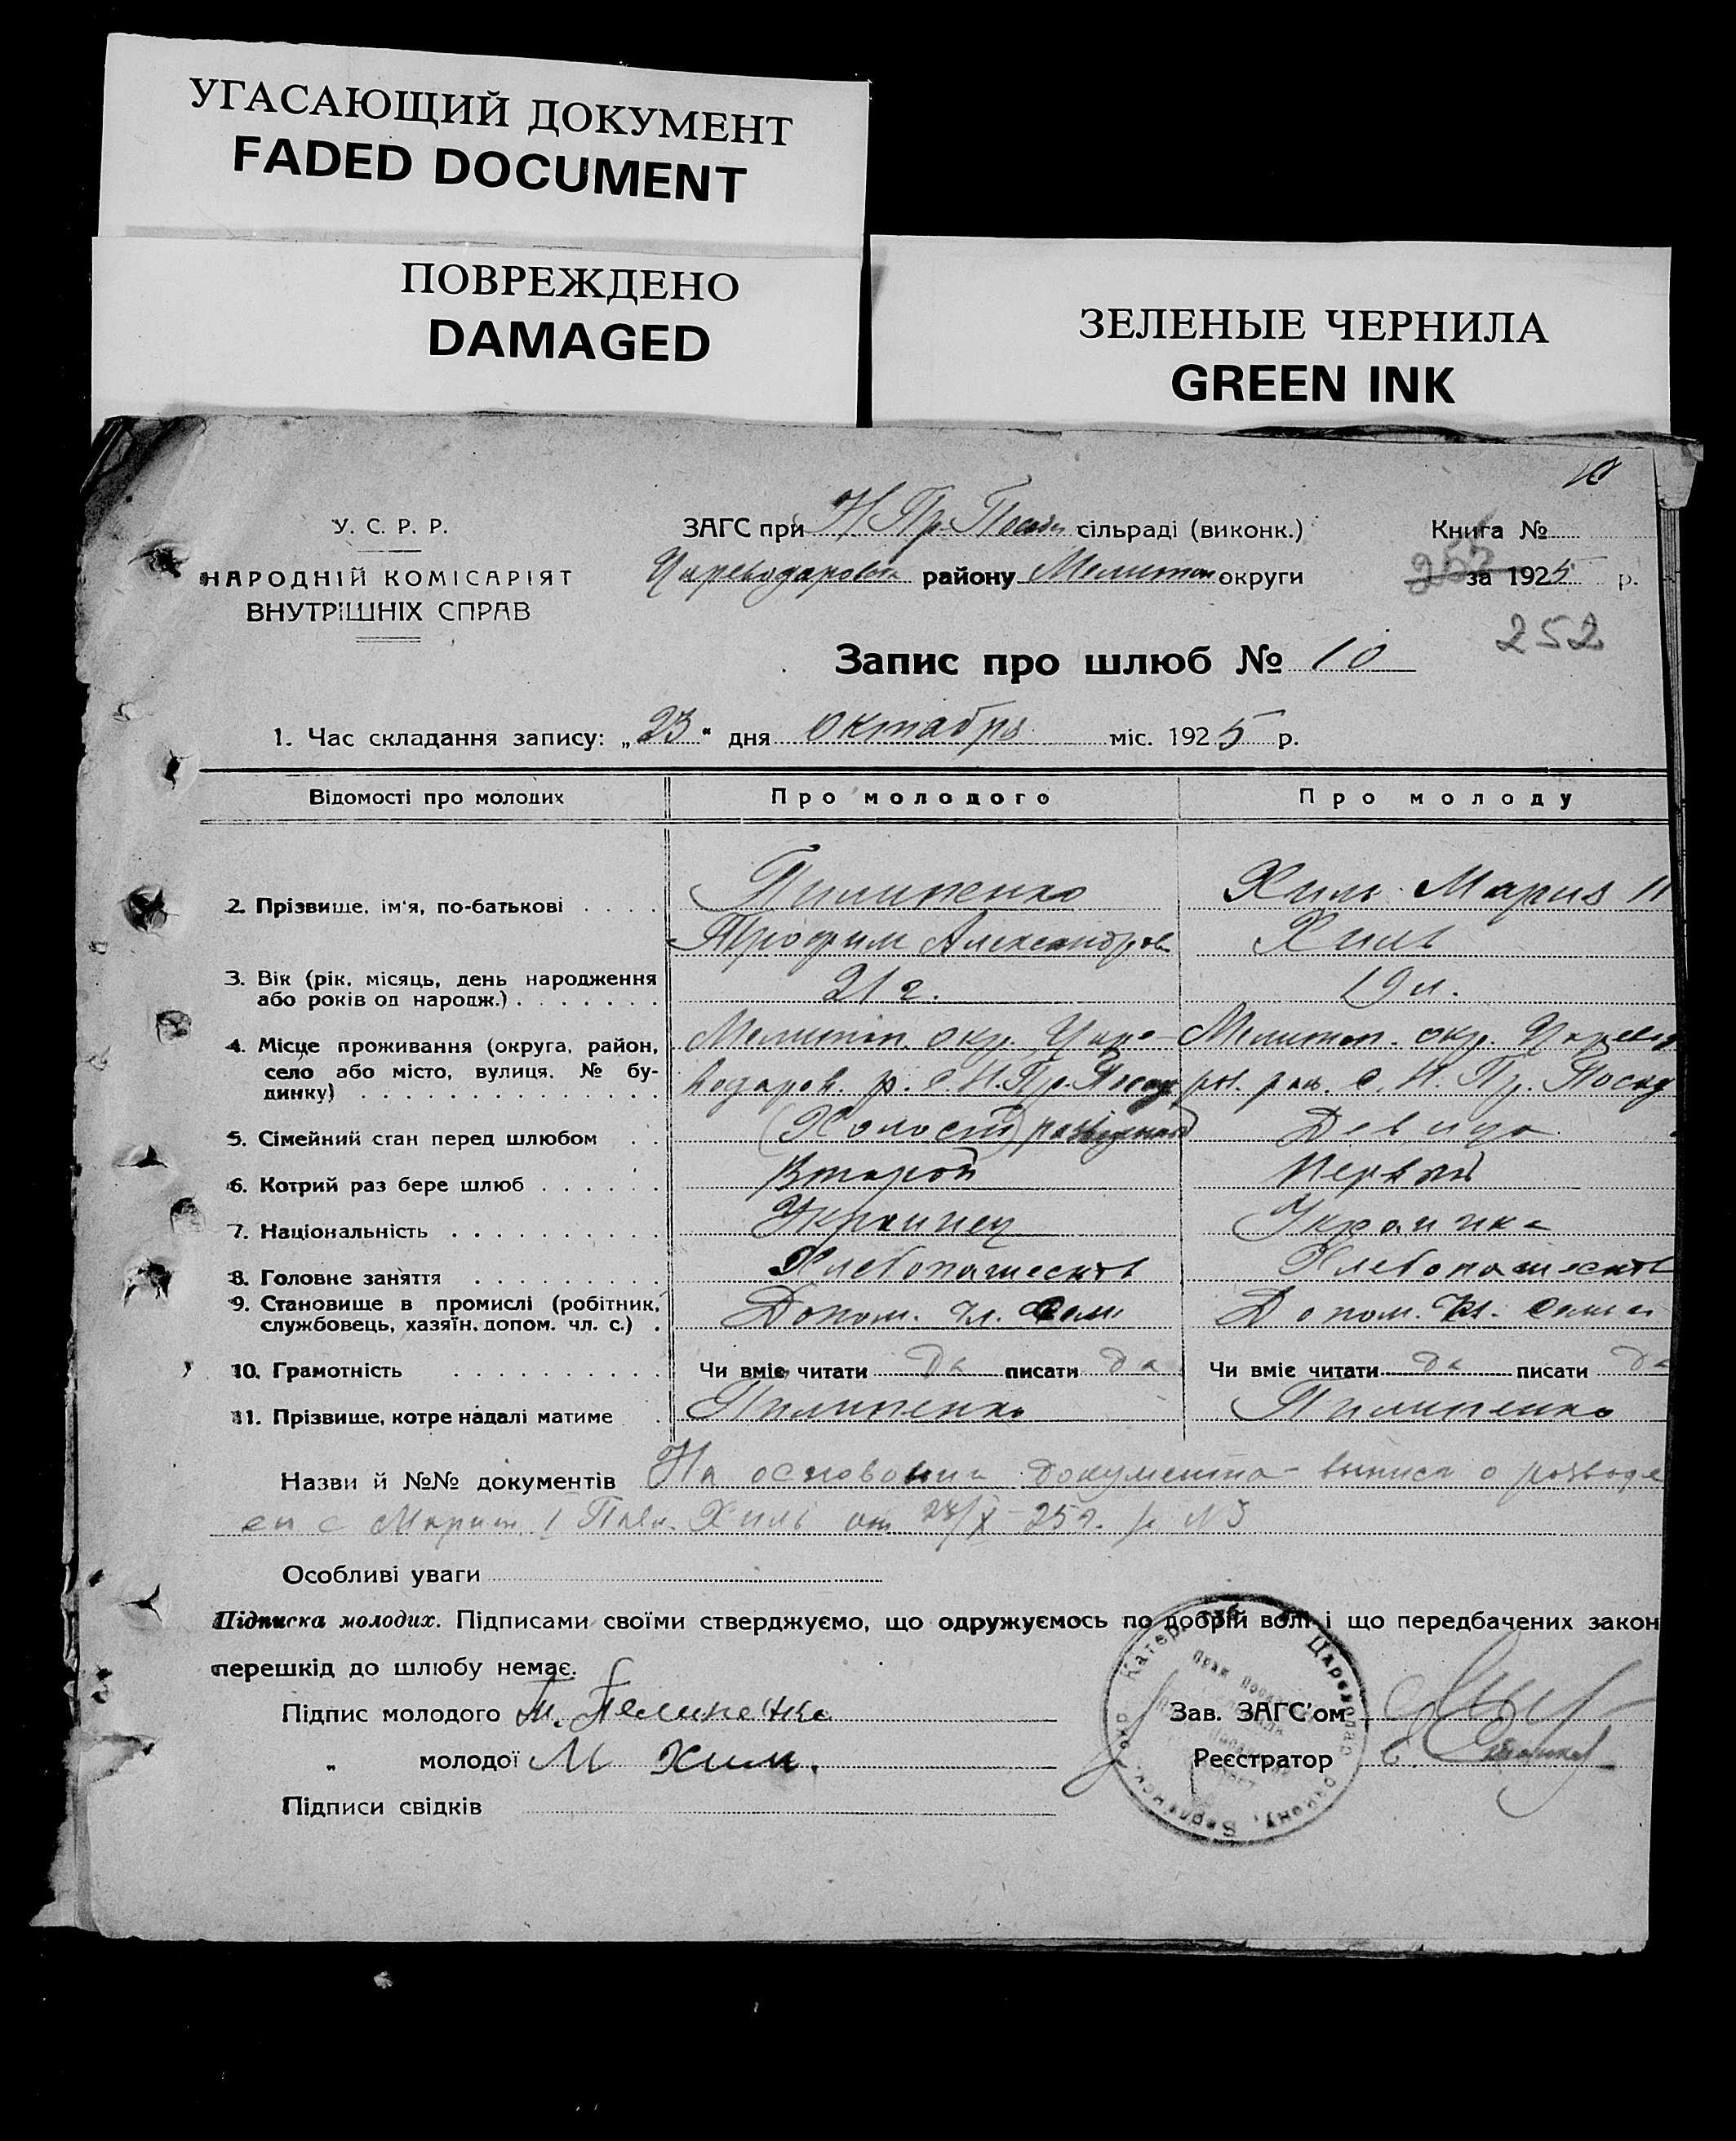 УГАСАЮЩИЙ ДОКУМЕНТ
FADED DOCUMENT
ПОВРЕЖДЕНО
DAMAGED
ЗЕЛЕНЫЕ ЧЕРНИЛА
GREEN INK
У. С. Р. Р.
НАРОДНІЙ КОМІСАРІЯТ
ВНУТРІШНІХ СПРАВ
ЗАГС при Н. Пр. Посад сільраді (виконк.)
Цареводаровск району Мелитоп округи
Книга №
за 1925 р.
252
Запис про шлюб № 10
1. Час складання запису: „23" дня октабря міс. 1925 р.
Відомості про молодих Про молодого Про молоду
2. Прізвище, ім'я, по-батькові . . . . Пилипенко Хиль Мария II
Трофим Александров Хиль
3. Вік (рік, місяць, день народження
або років од народж.) . . . . . . . 21 г. 19 л.
4. Місце проживання (округа, район,
село або місто, вулиця, № бу-
динку) . . . . . . . . . . . . . .
Мелитоп окр. Царе- Мелитоп. окр. Царевод
водаров. р. с. Н. Пр. Посад ров. рай. с. Н. Пр. Посад
5. Сімейний стан перед шлюбом . . (Холост) Девица
6. Котрий раз бере шлюб . . . . . . Второй Первый
7. Національність . . . . . . . . . . Украинец Украинка
8. Головне заняття . . . . . . . . . Хлебопашество Хлебопашество
9. Становище в промислі (робітник,
службовець, хазяїн, допом. чл. с.) . Допом. чл. сем. Допом. чл. семьи
10. Грамотність . . . . . . . . . . Чи вміє читати да писати да Чи вміє читати да писати да
11. Прізвище, котре надалі матиме . Пилипенко Пилипенко
Назви й №№ документів На основании документа - выписи о розводе
с Марией I Павл. Хиль от /X 25 г. № 3
Особливі уваги
Підписка молодих. Підписами своїми стверджуємо, що одружуємось по добрій волі і що передбачених закон
перешкід до шлюбу немає.
Підпис молодого Пелипенко
„ молодої М Хил.
Підписи свідків
Зав. ЗАГС'ом
Реєстратор